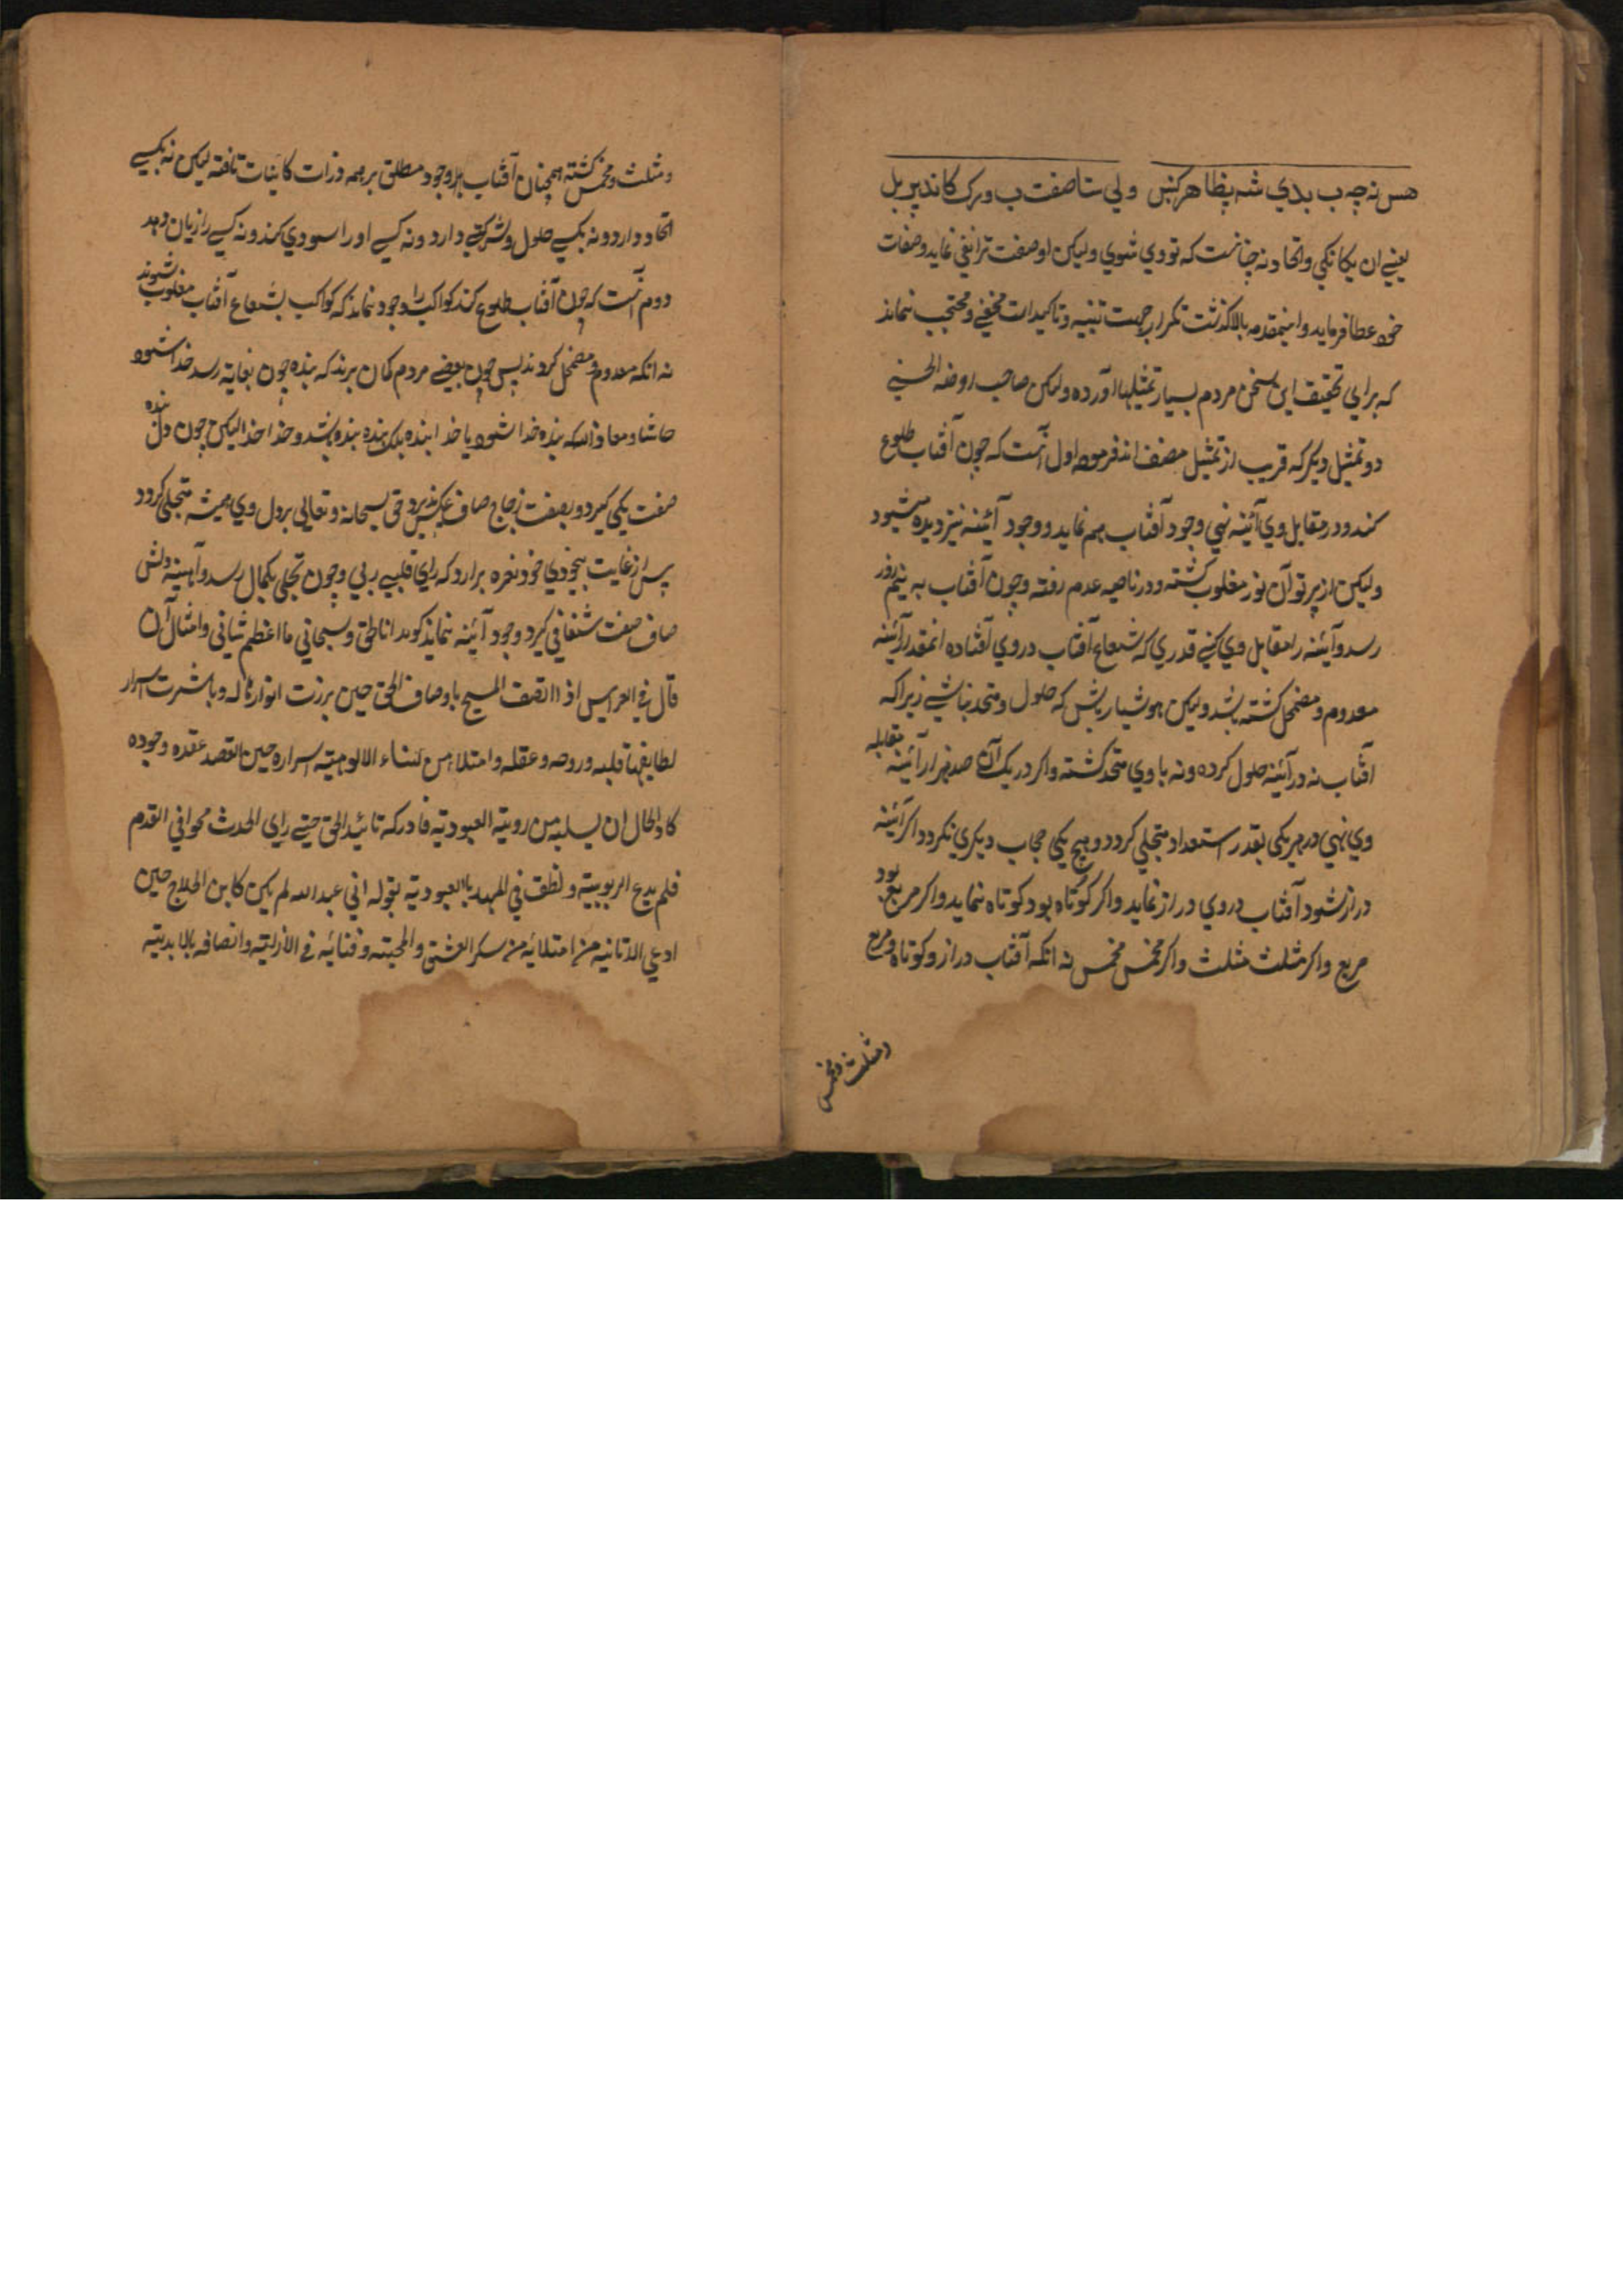 هس نه چه ب بدي شه پظاهر کنبن ولي ستا صفت ب ورک کاند پر بل
يعني ان يکانکي واتحاد نه چنانست که تو وي شوي وليکن او صفت ترا نفي نمايد وصفات
خود عطا فرمايد واينمقدمه بالا کذشت تکرار جهت تنبيه وتاکيد است مخفي ومحتجب نماند
که براي تحقيق اين سخن مردم بسيار تمثيلها آورده وليکن صاحب روضه الحسني
دو تمثيل ديکر که قريب از تمثيل مصنف اند فرموده اول آنست که چون آفتاب طلوع
کند ودر مقابل وي آئينه نهي وجود آفتاب هم نمايد ووجود آئينه نيز ديده ميشود
وليکن از پرتو آن نور مغلوب کشته ودر ناحيه عدم رفته وچون آفتاب به نيم روز
رسد وآئينه را مقابل وي کني قدري که شعاع آفتاب در وي آفتاده انمقدر آئينه
معدوم ومضمحل کشته باشد وليکن هوشيار باش که حلول ومتحد نباشي زيرا که
افتاب نه در آئينه حلول کرده ونه با وي متحد کشته واکر در يک آن صد هزار آئينه مقابله
وي نهي در هر يکي بقدر استعداد متجلي کردد وهيچ يکي حجاب ديکري نکردد اکر آئينه
دراز شود آفتاب در وي دراز نمايد واکر کوتاه بود کوتاه نمايد واکر مربع بود
مربع واکر مثلث مثلث واکر مخمس مخمس نه انکه آفتاب دراز وکوتاه ومربع
ومثلث ومخمس
ومثلث ومخمس کشته همچنان آفتاب وجود مطلق بر همه ذرات کائنات تافته ليکن نه بکسي
اتحاد دارد ونه بکسي حلول وشرکتي دارد ونه کسي او را سودي کند ونه کسي را زيان دهد
دوم آنست که چون آفتاب طلوع کند کواکب را وجود نماند که کواکب بشعاع آفتاب مغلوب شوند
نه انکه معدوم ومضمحل کردند پس چون بعضي مردم کمان برند که بنده چون بغايه رسد خدا شود
حاشا ومعاذ الله که بنده خدا شود يا خدا بنده بلکه بنده بنده باشد وخدا خدا ليکن چون دل بنده
صفت يکي کيرد وبصفت زجاج صاف عکس پذيرد حق سبحانه وتعالي بر دل وي هميشه متجلي کردد
پس از غايت بيخودي خود نعره برارد که راي قلبي ربي وچون تجلي بکمال رسد وآئينه دلش
صاف صفت شفافي کيرد وجود آئينه نماند کويد انا الحق وسبحاني ما اعظم شاني وامثال آن
قال في العرايس اذا اتصف المسيح باوصاف الحق حين برزت انواره له وباشرت اسرار
لطايفها قلبه وروحه وعقله وامتلا من سناء الالوهية اسراره حين القصد عقده وجوده
کاد الحال ان يسلبه من روية العبودية فادرکه تائيد الحق حتي راي الحدث محوا في القدم
فلم يدع الربوبية ونطق في المهد بالعبودية بقوله اني عبد الله لم يکن کابن الحلاج حين
ادعي الانانية من امتلائه من سکر العشق والمحبته وفنائه في الازلية واتصافه بالابدية